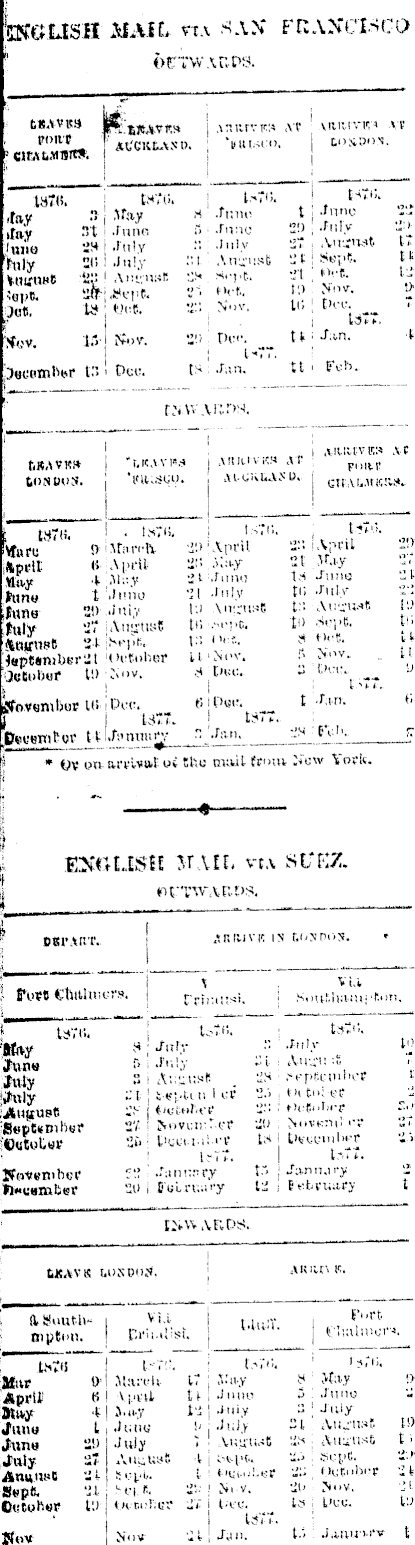 ENGLISH MAIL VIA SAN FRANCISCO
OUTWARDS.
LEAVES PORT CHALMERS. LEAVES AUCKLAND. ARRIVES AT 'FRISCO. ARRIVES AT LONDON.
1876. 1876. 1876. 1876.
May 3 May 8 June 1 June 22
May 31 June 5 June 29 July 20
June 28 July 3 July 27 August 17
July 26 July 31 August 24 Sept. 14
August 23 August 28 Sept. 21 Oct. 12
Sept. 20 Sept. 25 Oct. 19 Nov. 9
Oct. 18 Oct. 23 Nov. 16 Dec. 7
1877.
Nov. 15 Nov. 20 Dec. 14 Jan. 4
1877.
December 13 Dec. 18 Jan. 11 Feb.
INWARDS.
LEAVES LONDON. *LEAVES 'FRISCO. ARRIVES AT AUCKLAND. ARRIVES AT PORT CHALMERS.
1876. 1876. 1876. 1876.
Marc 9 March 29 April 23 April 29
April 6 April 26 May 21 May 27
May 4 May 24 June 18 June 24
June 1 June 21 July 16 July 22
June 29 July 19 August 13 August 19
July 27 August 16 Sept. 10 Sept. 16
August 24 Sept. 13 Oct. 8 Oct. 14
September 21 October 11 Nov. 5 Nov. 11
October 19 Nov. 8 Dec. 3 Dec. 9
1877.
November 16 Dec. 6 Dec. 1 Jan. 6
1877. 1877.
December 14 January 3 Jan. 28 Feb.
* Or on arrival of the mail from New York.
ENGLISH MAIL VIA SUEZ.
OUTWARDS.
DEPART. ARRIVE IN LONDON.
Port Chalmers. Brindisi. Via Southampton.
1876. 1876. 1876.
May 8 July 3 July 10
June 5 July 31 August 7
July 3 August 28 September
July 31 September 25 October 2
August 28 October 23 October 30
September 27 November 20 November 27
October 25 December 18 December 25
1877. 1877.
November 22 January 15 January 2
December 20 February 12 February 1
INWARDS.
LEAVE LONDON. ARRIVE.
South- mpton. Via Brindisi. Bluff. Port Chalmers.
1876 1876. 1876. 1876.
Mar 9 March 17 May 8 May 9
April 6 April 14 June 5 June
May 4 May 12 July 3 July
June 1 June 9 July 31 August
June 29 July 7 August 28 August
July 27 August 4 Sept. 25 Sept.
August 24 Sept. 1 October 23 October 24
Sept. 21 Sept. 29 Nov. 20 Nov. 21
October 19 October 27 Dec. 18 Dec. 19
1877.
Nov Nov 24 Jan. 15 January 1